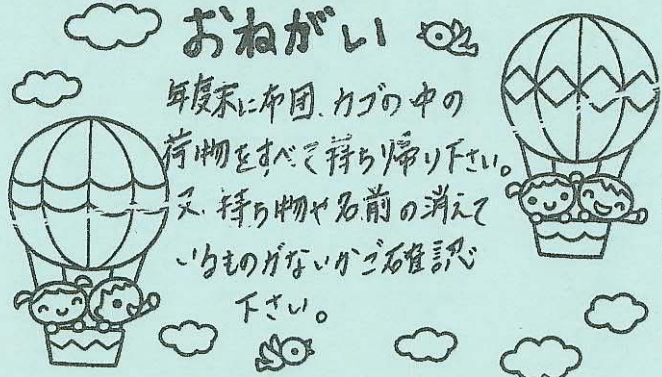 おねがい
年度末に布団、カゴの中の
荷物をすべて持ち帰り下さい。
又、持ち物や名前の消えて
いるものがないかご確認
下さい。